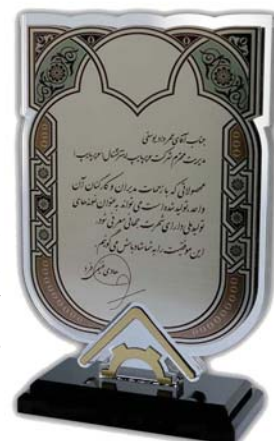 جناب آقای مهرداد یوسفی
مدیریت محترم شرکت
محصولاتی که با زحمات مدیران و کارکنان آن
واحد، تولید شده است می تواند به عنوان نمونه های
تولید ملی دارای شهرت جهانی معرفی شود.
این موفقیت را به شما شادباش می گویم.